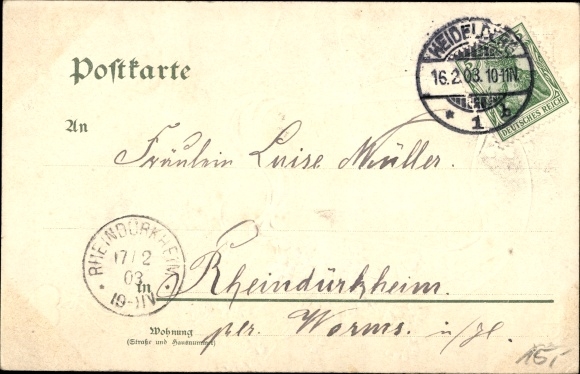 Postkarte
HEIDELBERG
16.2.03. 10-11N.
* 1 b
DEUTSCHES REICH
An
Fräulein Luise Müller.
RHEINDÜRKHEIM
17/2
03
in
Rheindürkheim.
Wohnung
(Straße und Hausnummer)
per. Worms.
15,-